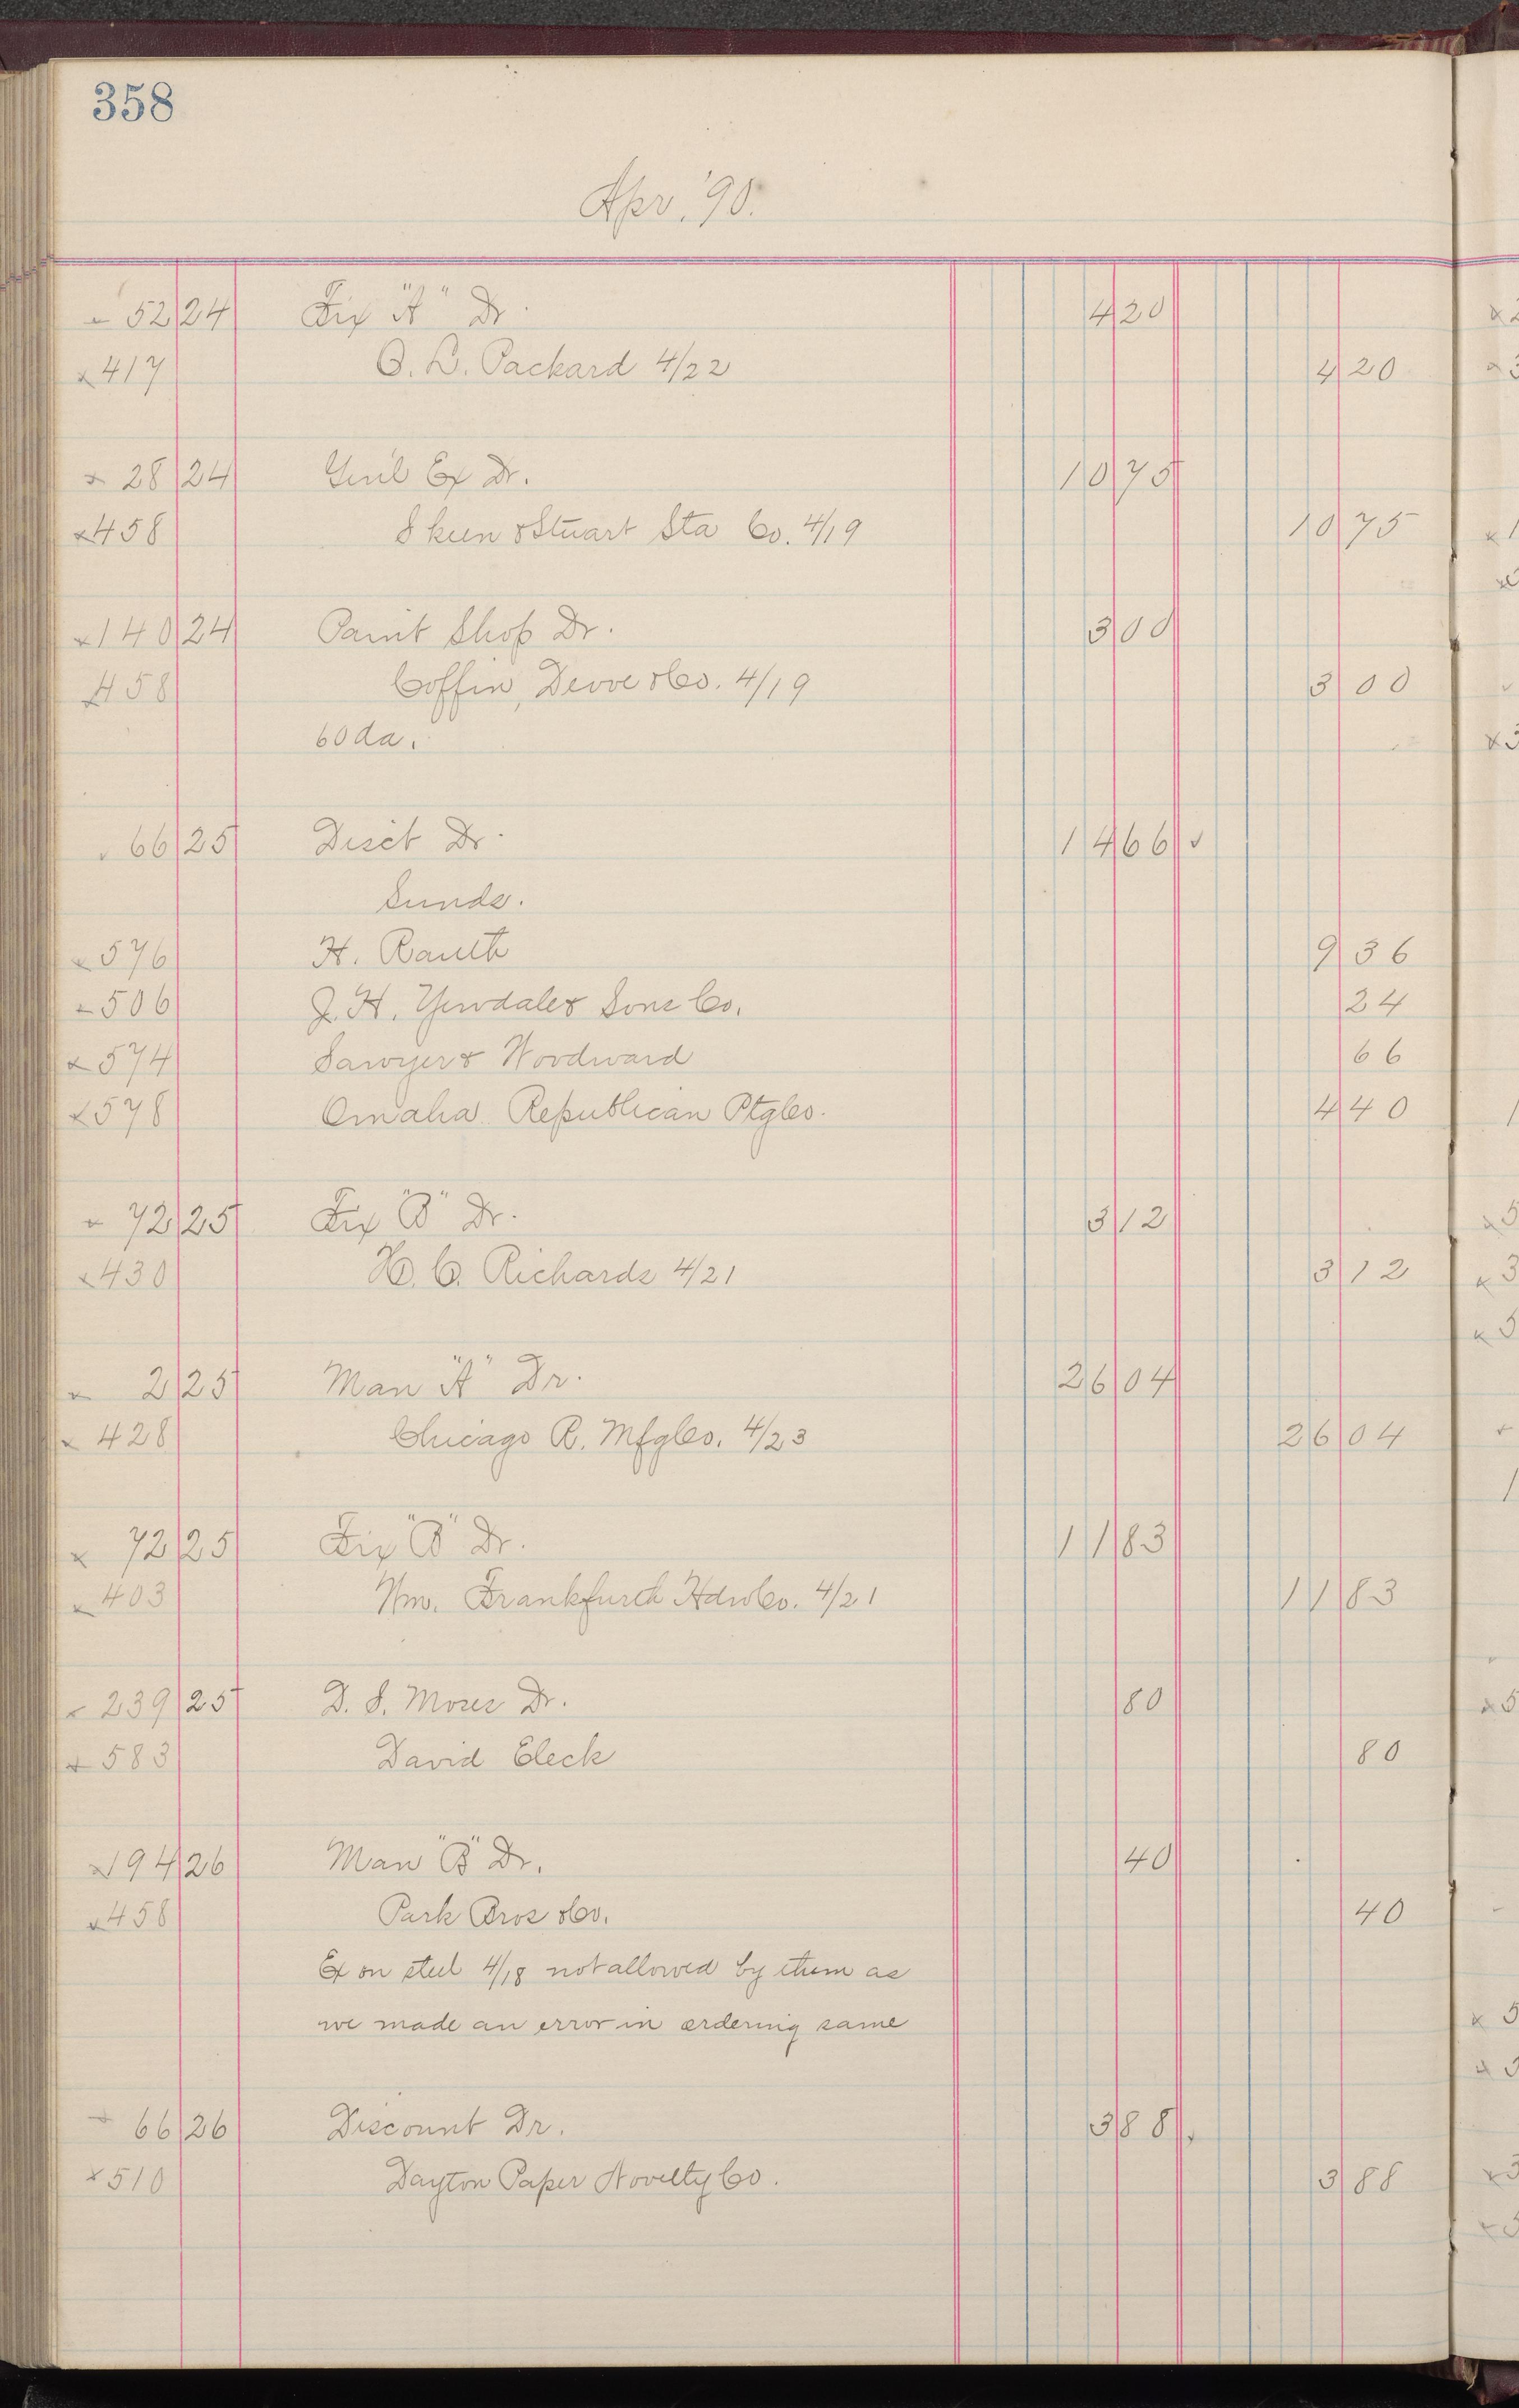 358
Apr. '90.
52 24 Fix "A" Dr. 4 20
x 417 O. L. Packard 4/22 4 20
x 28 24 Gen'l Ex Dr. 10 75
x 458 Skeen & Stuart Sta Co. 4/19 10 75
x 140 24 Paint Shop Dr. 3 00
x 458 Coffin, Devoe & Co. 4/19 3 00
60 da.
66 25 Disct Dr. 14 66 ✓
Sunds.
x 576 H. 9 36
x 506 J. H. Yewdale & Sons Co. 24
x 574 Sawyer & Woodward 66
x 578 Omaha Republican Ptg Co. 4 40
x 72 25 Fix "B" Dr. 3 12
x 430 H. C. Richards 4/21 3 12
x 2 25 Man "A" Dr. 26 04
x 428 Chicago R. Mfg Co. 4/23 26 04
x 72 25 Fix "B" Dr. 11 83
x 403 Wm. Frankfurth Hdw Co. 4/21 11 83
x 239 25 D. S. Moses Dr. 80
x 583 David Eleck 80
x 194 26 Man "B" Dr. 40
x 458 Park Bros & Co. 40
Ex on steel 4/18 not allowed by them as
we made an error in ordering same
x 66 26 Discount Dr. 3 88 ✓
x 510 Dayton Paper Novelty Co. 3 88